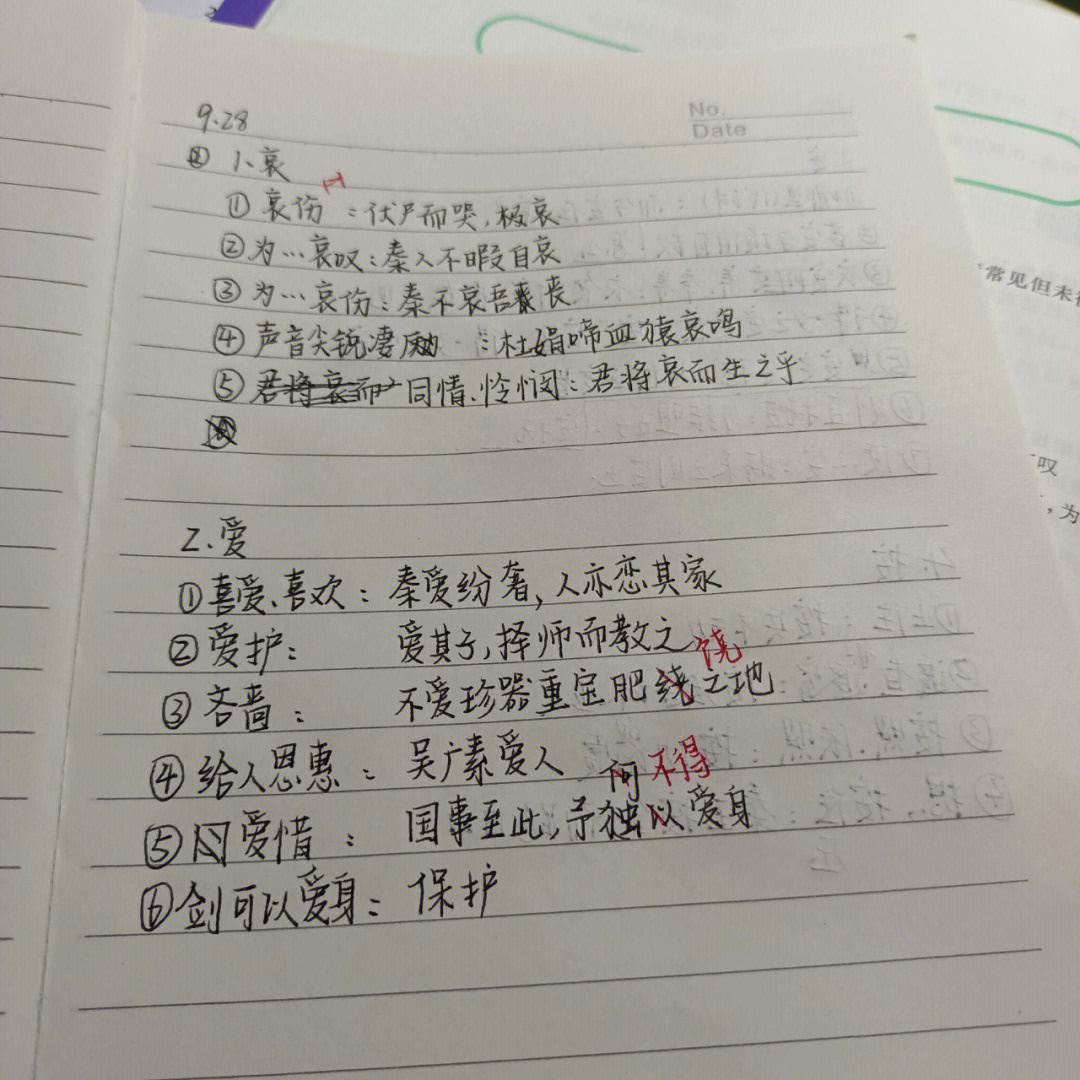 No.
Date
9.28
1、哀
①哀伤：伏尸而哭,极哀
②为…哀叹：秦人不暇自哀
③为…哀伤：秦不哀吾丧
④声音尖锐凄厉：杜娟啼血猿哀鸣
⑤君将哀而 同情、怜悯：君将哀而生之乎
2.爱
①喜爱、喜欢：秦爱纷奢,人亦恋其家
②爱护：爱其子,择师而教之
饶
③吝啬：不爱珍器重宝肥绕之地
④给人恩惠：吴广素爱人
何 不得
⑤爱惜：国事至此,予独以爱身
⑥剑可以爱身：保护
常见但未
叹
，为